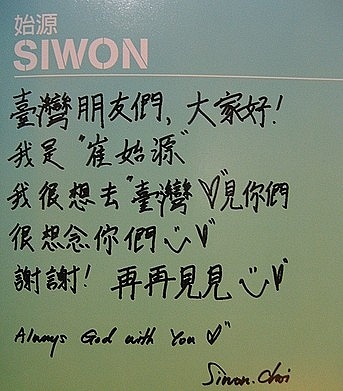 始源
SIWON
臺灣朋友們, 大家好!
我是"崔始源"
我很想去"臺灣♡"見你們
很想念你們
謝謝! 再再見見
Always God with You ♡"
Siwon. Choi